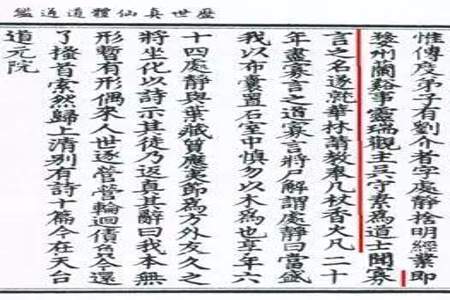 歷世真仙體道通鑑
惟傳度弟子有劉介者字處靜捨明經業即
婺州蘭谿事靈瑞觀主吳守素為道士聞寡
言之名遂詣華林請教奉几杖香火凡二十
年盡寡言之道寡言將尸解謂處靜曰當盛
我以布囊置石室中慎勿以木為也享年六
十四處靜與葉藏質應夷節為方外友久之
將坐化以詩示其徒乃返真其辭曰我本無
形暫有形偶來人世逐營營輪迴債負今還
了搔首索然歸上清別有詩十篇今在天台
道元院